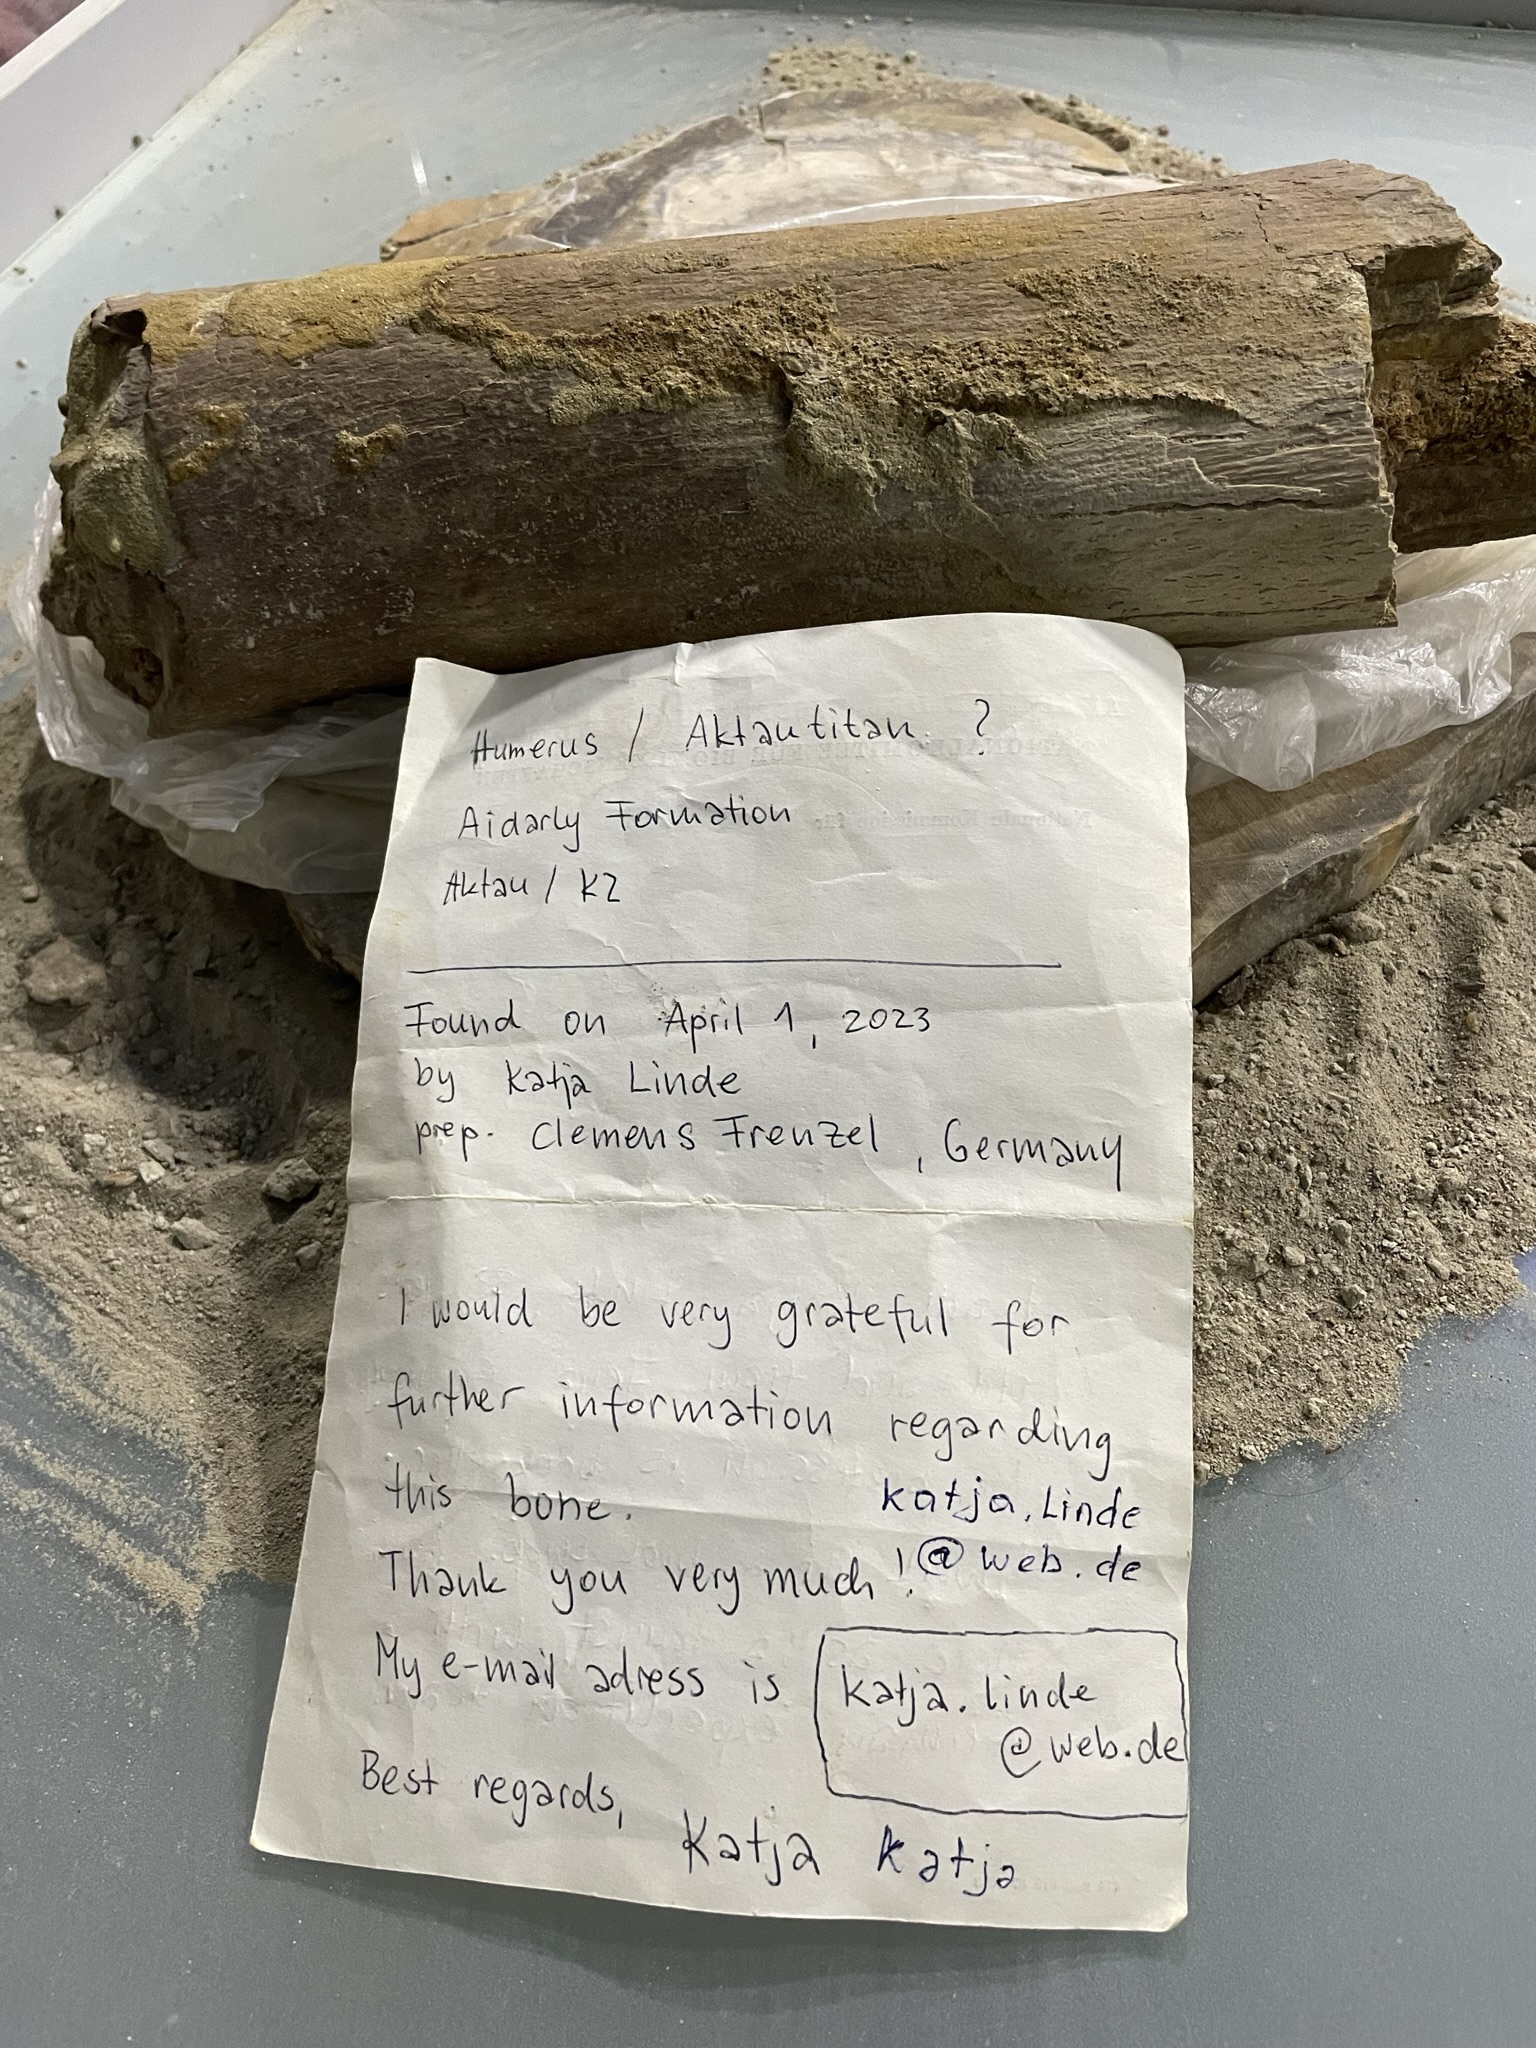 Humerus / Aktautitan ?
Aidarly Formation
Aktau / KZ
Found on April 1, 2023
by Katja Linde
prep. Clemens Frenzel, Germany
I would be very grateful for
further information regarding
this bone.
katja.Linde
Thank you very much!
@web.de
My e-mail adress is
katja.linde
@web.de
Best regards,
Katja Katja